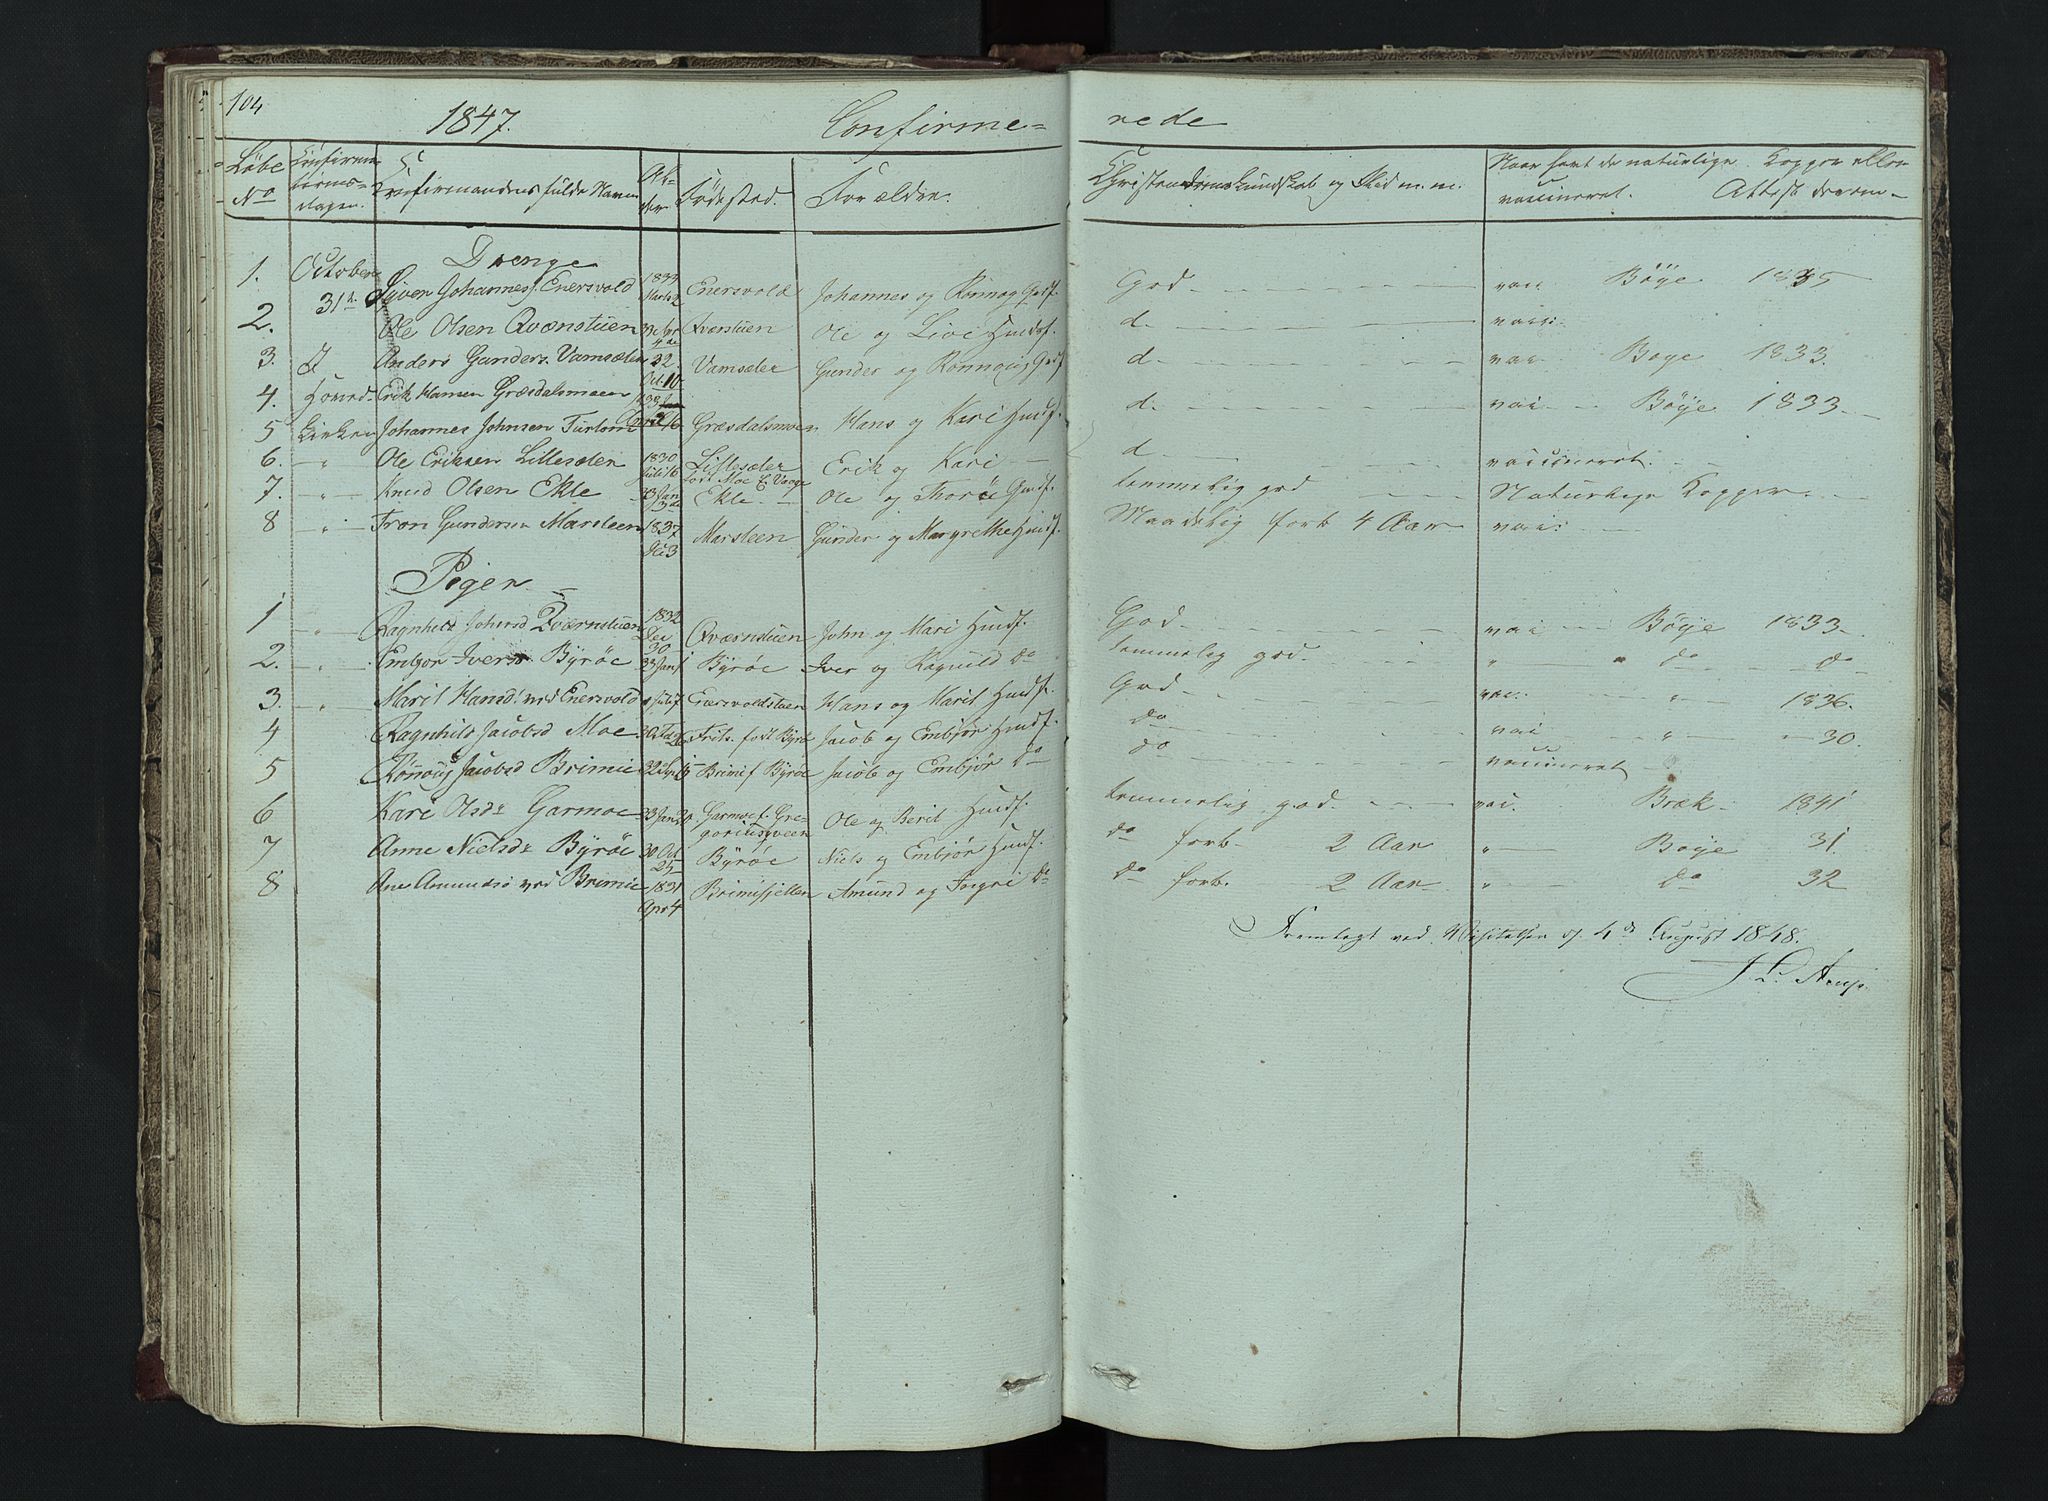 104
1847. Confirme= rede
Løbe No Confirma tions= dagen. Confirmandens fulde Navn Al- der Födested. Forældre. Christendomskundskab og Flid m. m. Naar havt de naturlige Kopper eller vaccineret. Attest derom
Drenge
1. October Johannes. Enersvold 1833 Marts 2 Enersvold Johannes og Ronnog Gdf. God vac Böye 1835
2. 31te Ole Olsen Qvænstuen Qværstuen Ole og Live Huusf. d. vac:
3. J Anders Gunders. Vamsæter 32. Oct. 10 Vamsæter Gunder og Ronnoug Gdf d. vac Boye 1833.
4. Hoved- Erik Hansen Græsdalsmoen 1833 Græsdalsmoen Hans og Kari Huusf. d. vac Böye 1833
5 Kirken Johannes Johnsen
6. " Ole Eriksen Lillesæter 1830 Juli 16 Lillesæter födt Moe Erik og Kari d. vaccineret.
7. " Knud Olsen Ekle 33 Jan 3de Ekle Ole og Thore Gdf. temmelig god Naturlige Kopper.
8 " Tron Gundersen Marsteen 1837 Marsteen Gunder og Margrethe Huusf. Maadelig forb 4 Aar vac:
Piger
1 " Ragnhild Johnsd Qværnstuen 1832 Dec 30 Qværnstuen John og Mari Huusf. God vac Böye 1833
2. " Embjor Iversd Byröe 33 Jan 1 Byröe Iver og Ragnild do temmelig god " do do
3. " Marit Hansd. ved Enersvold Juli Enersvoldstuen Hans og Marit Huusf. God vac. " 1836.
4 Ragnhild Jacobsd Moe 30 födt Byröe Jacob og Embjör Huusf. do vac " 30.
5 Rönnoug Jacobsd Brimie 32 Brimi f Byröe Jacob og Embjör do do vaccineret
6 Kari Olsdr Garmoe 33 Jan Garmoe f. Gre- goriusqveen Ole og Berit Huusf. temmelig god vac. Bræk 1841
7 Anne Nielsdr Byröe 30 Oct 25 Byröe Niels og Embjör Huusf. do forb. 2 Aar " Boye 31.
8 Ane Amundsd ved Brimie 1831 Apr 4 Brimifjellen Amund og Ingri do do forb. 2 Aar " do 32
Fremlagt ved Visitatsen d. 4de August 1848.
J L. Arup